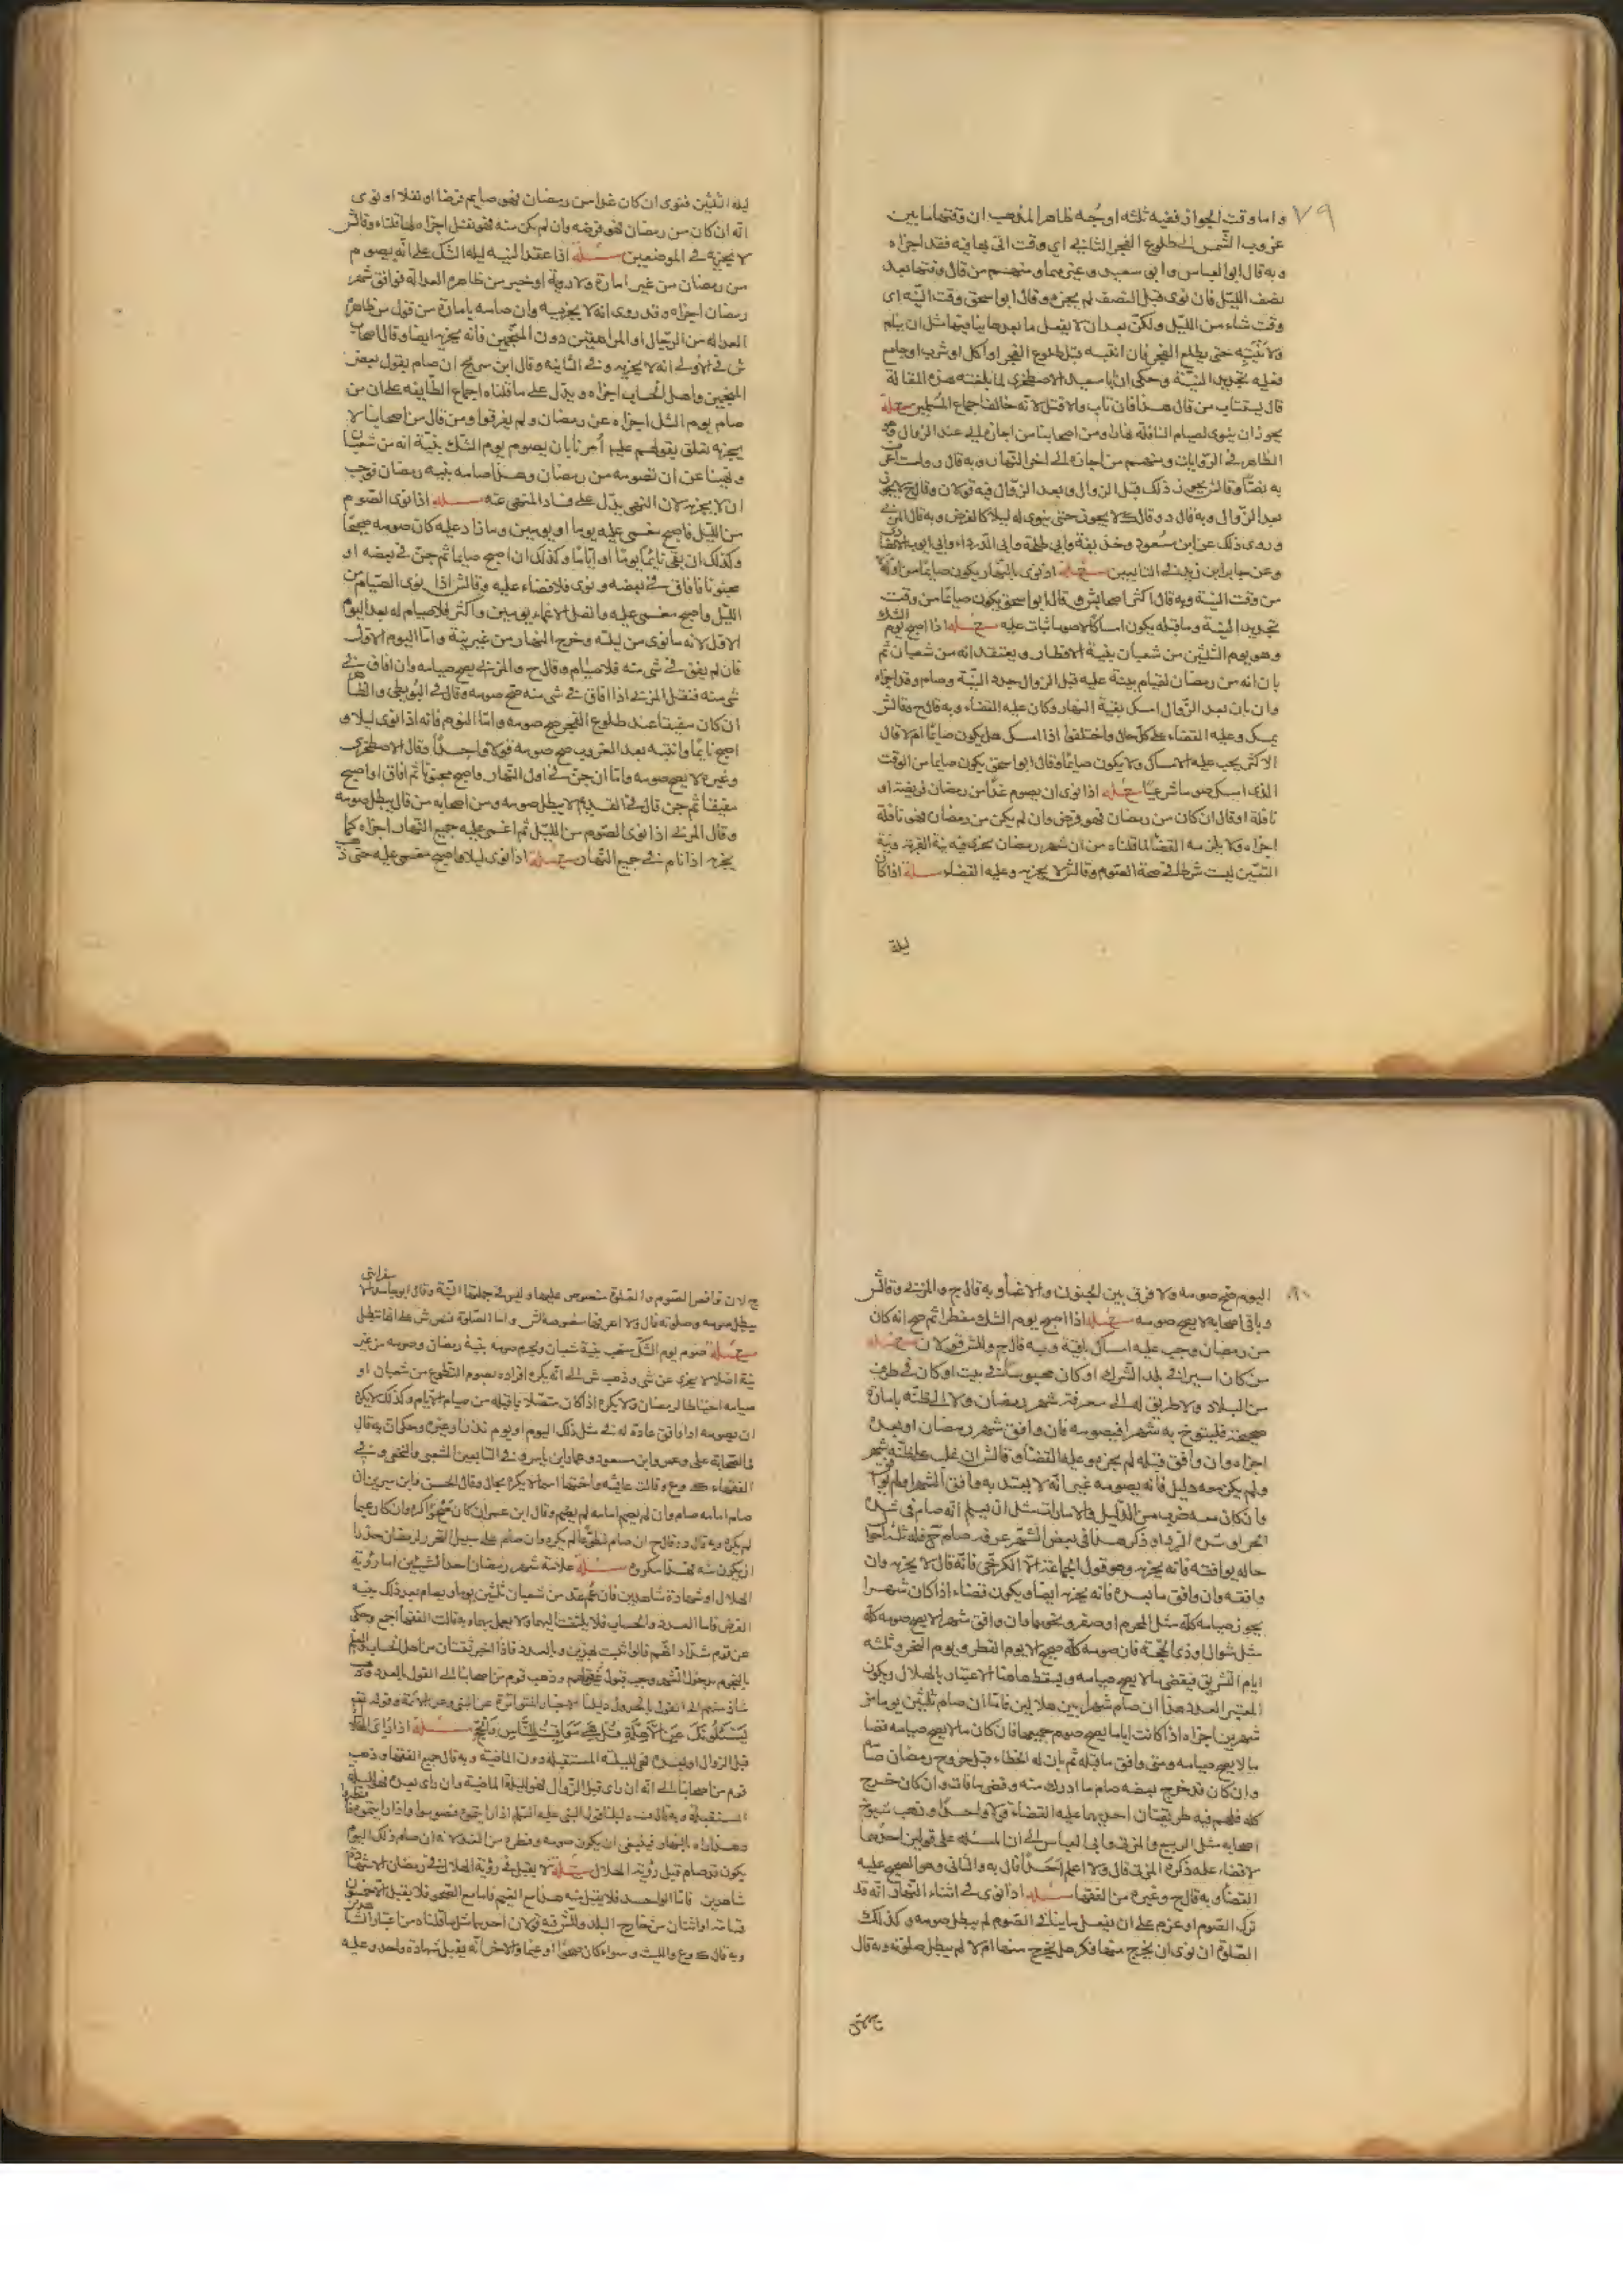 ٧٩
واما وقت الجواز ففيه ثلثه اوجه ظاهر المذهب ان وقتها ما بين
غروب الشمس الى طلوع الفجر الثاني اي وقت اتى بها فيه فقد اجزاه
وبه قال ابو العباس وابي سعيد وغيرهما ومنهم من قال وقتها بعد
نصف الليل فان نوى قبل النصف لم يجزه وقال ابو اسحق وقت النية اى
وقت شاء من الليل ولكن بعد ان لا يفعل ما بعدها ينافيها مثل ان ينام
ولا ينتبه حتى يطلع الفجر فان انتبه قبل طلوع الفجر او اكل او شرب او جامع
فعليه تجديد النية وحكى ان ابا سعيد الاصطخري لما بلغته هذه المقالة
قال يستتاب من قال هذا فان تاب والا قتل لانه خالف اجماع المسلمين مسئلة
يجوز ان ينوى لصيام النافلة نهارا ومن اصحابنا من اجازه الى عند الزوال وهو
الظاهر في الروايات ومنهم من اجازه الى اخر النهار وبه قال ولست اعرف
به نصا وقال ش يجوز ذلك قبل الزوال وبعد الزوال فيه قولان وقال ح لا يجوز
بعد الزوال وبه قال د وقال ك لا يجوز حتى ينوى له ليلا كالفرض وبه قال المزني
وروى ذلك عن ابن مسعود وحذيفة وابي طلحة وابي الدرداء وابي ايوب الانصاري
وعن جابر ابن زيد في التابعين مسئلة اذا نوى بالنهار يكون صايما من اوله
من وقت النية وبه قال اكثر اصحاب ش وقال ابو اسحق يكون صايما من وقت
تجديد النية وما قبله يكون امساكا لا صوما يثاب عليه مسئلة اذا اصبح يوم الشك
وهو يوم الثلثين من شعبان بنية الافطار ويعتقد انه من شعبان ثم
بان انه من رمضان لقيام بينة عليه قبل الزوال جدد النية وصام وقد اجزاه
وان بان بعد الزوال امسك بقية النهار وكان عليه القضاء وبه قال ح وقال ش
يمسك وعليه القضاء على كل حال واختلفوا اذا امسك هل يكون صايما ام لا قال
الاكثر يجب عليه الامساك ولا يكون صايما وقال ابو اسحق يكون صايما من الوقت
الذي امسك صوما شرعيا مسئلة اذا نوى ان يصوم غدا من رمضان فريضة او
نافلة او قال ان كان من رمضان فهو فرض وان لم يكن من رمضان فهو نافلة
اجزاه ولا يلزمه القضاء لما قلناه من ان شهر رمضان يجزي فيه نية القربة ونية
التعيين ليست شرطا في صحة الصوم وقال ش لا يجزيه وعليه القضاء مسئلة اذا كان
ليلة
ليلة الثلثين فنوى ان كان غدا من رمضان فهو صايم فرضا او نفلا او نوى
انه ان كان من رمضان فهو فرضه وان لم يكن منه فهو نفل اجزاه لما قلناه وقال ش
لا يجزيه في الموضعين مسئلة اذا عقد النية ليلة الشك على انه يصوم
من رمضان من غير امارة ولا روية او خبر من ظاهره العدالة فوافق شهر
رمضان اجزاه وقد روى انه لا يجزيه وان صامه بامارة من قول من ظاهره
العدالة من الرجال او المراهقين دون المنجمين فانه يجزيه ايضا وقال اصحاب
ش في الاولى انه لا يجزيه وفي الثانية وقال ابن سريج ان صام بقول بعض
المنجمين واهل الحساب اجزاه ويدل على ما قلناه اجماع الطايفه على ان من
صام يوم الشك اجزاه عن رمضان ولم يفرقوا ومن قال من اصحابنا لا
يجزيه تعلق بقولهم عليم امرنا بان يصوم يوم الشك بنية انه من شعبان
ونهينا عن ان نصومه من رمضان وهذا صامه بنيه رمضان فوجب
ان لا يجزيه لان النهى يدل على فساد المنهى عنه مسئلة اذا نوى الصوم
من الليل فاصبح مغمى عليه يوما او يومين وما زاد عليه كان صومه صحيحا
وكذلك ان بقى نايما يوما او اياما وكذلك ان اصبح صايما ثم جن في بعضه او
مجنونا فافاق في بعضه ونوى فلا قضاء عليه وقال ش اذا نوى الصيام من
الليل واصبح مغمى عليه واتصل الاغماء يومين واكثر فلا صيام له بعد اليوم
الاول لانه ما نوى من ليلته وخرج النهار من غير نية واما اليوم الاول
فان لم يفق في شى منه فلا صيام وقال ح والمزنى يصح صيامه وان افاق في
شى منه فنقل المزنى اذا افاق في شى منه صح صومه وقال في البويطي والظهار
ان كان مفيقا عند طلوع الفجر صح صومه واما النوم فانه اذا نوى ليلا و
اصبح نايما وانتبه بعد الغروب صح صومه قولا واحدا وقال الاصطخري
وغيره لا يصح صومه واما ان جن في اول النهار واصبح مجنونا ثم افاق او اصبح
مفيقا ثم جن قال في القديم لا يبطل صومه ومن اصحابه من قال يبطل صومه
وقال المزنى اذا نوى الصوم من الليل ثم اغمى عليه جميع النهار اجزاه كما
يجزيه اذا نام في جميع النهار مسئلة اذا نوى ليلا واصبح مغمى عليه حتى ذهب
٨٠
اليوم صح صومه ولا فرق بين الجنون والاغماء وبه قال ح والمزنى وقال ش
وباقى اصحابه لا يصح صومه مسئلة اذا اصبح يوم الشك مفطرا ثم صح انه كان
من رمضان وجب عليه امساك باقيه وبه قال ح وللش قولان مسئلة
من كان اسيرا في بلد الشرك او كان محبوسا في بيت او كان في طرف
من البلاد ولا طريق له الى معرفة شهر رمضان ولا الى ظنه بامارة
صحيحة فليتوخ به شهرا فيصومه فان وافق شهر رمضان او بعده
اجزاه وان وافق قبله لم يجزه وعليه القضاء وقال ش ان غلب على ظنه شهر
ولم يكن معه دليل فانه يصومه غير انه لا يعتد به وافق الشهر او لم يوافق
وان كان معه ضرب من الدليل والامارات مثل ان يعلم انه صام في شدة
الحر او شدة البرد او ذكر هذا في بعض الشهر عرفه صام ح فله ثلث احوال
حاله يوافقه فانه يجزيه وهو قول الجماعة الا الكرخى فانه قال لا يجزيه وان
وافقه وان وافق ما بعده فانه يجزيه ايضا ويكون قضاء اذا كان شهرا
يجوز صيامه كله مثل المحرم او صفر ونحوهما وان وافق شهرا لا يصح صومه كله
مثل شوال او ذى الحجة فان صومه كله صحيح الا يوم الفطر ويوم النحر وثلثه
ايام التشريق فيقضى ما لا يصح صيامه ويسقط هاهنا الاعتبار بالهلال ويكون
المعتبر العدد هذا ان صام شهرا بين هلالين فاما ان صام ثلثين يوما من
شهرين اجزاه اذا كانت اياما يصح صوم جميعها فان كان ما لا يصح صيامه قضا
ما لا يصح صيامه ومتى وافق ما قبله ثم بان له الخطاء قبل خروج رمضان صامه
وان كان قد خرج بعضه صام ما ادرك منه وقضى ما فات وان كان خرج
كله فلهم فيه طريقتان احديهما عليه القضاء قولا واحدا وذهب شيوخ
اصحابه مثل الربيع والمزنى وابي العباس الى ان المسئلة على قولين احدهما
لا قضاء عليه ذكره المزنى قال ولا اعلم احدا قال به والثانى وهو الصحيح عليه
القضاء وبه قال ح وغيره من الفقها مسئلة اذا نوى في اثناء النهار انه قد
ترك الصوم او عزم على ان يفعل ما ينافى الصوم لم يبطل صومه وكذلك
الصلوة ان نوى ان يخرج منها او فكر هل يخرج منها ام لا لم يبطل صلوته وبه قال
ح لان نواقض الصوم والصلوة منصوص عليها وليس في جملتها النية وقال ابو حامد الاسفراينى
يبطل صومه وصلوته قال ولا اعرفها منصوصه لش واما الصلوة فنص ش على انها تبطل
مسئلة صوم يوم الشك يستحب بنية شعبان ويحرم صومه بنية رمضان وصومه من غير
نية اصلا لا يجزى عن شى وذهب ش الى انه يكره افراده بصوم التطوع من شعبان او
صيامه احتياطا لرمضان ولا يكره اذا كان متصلا بما قبله من صيام الايام وكذلك لا يكره
ان يصومه اذا وافق عادة له في مثل ذلك اليوم او يوم نذر او غيره وحكى ان به قال
في الصحابة على وعمر وابن مسعود وعمار ابن ياسر وفي التابعين الشعبى والنخعى وفي
الفقهاء ك وع وقالت عايشه واختها اسما لا يكره بحال وقال الحسن وابن سيرين ان
صام امامه صام وان لم يصم امامه لم يصم وقال ابن عمر ان كان صحوا كره وان كان غيما
لم يكره وبه قال د وقال ح ان صام تطوعا لم يكره وان صام على سبيل التحرز لرمضان حذرا
ان يكون منه فهذا مكروه مسئلة علامة شهر رمضان احد الشيئين اما روية
الهلال او شهادة شاهدين فان غم عد من شعبان ثلثين يوما ويصام بعد ذلك بنيه
الفرض فاما العدد والحساب فلا يلتفت اليهما ولا يعمل بهما وبه قالت الفقها اجمع وحكى
عن قوم شذاذ انهم قالوا يثبت بهذين وبالعدد فاذا اخبر ثقتان من اهل الحساب والعلم
بالنجوم بدخول الشهر وجب قبول قولهم وذهب قوم من اصحابنا الى القول بالعدد وذهب
شاذ منهم الى القول بالجدول دليلنا الاخبار المتواترة عن النبى وعن الائمة وقوله تعالى
يسئلونك عن الاهلة قل هى مواقيت للناس والحج مسئلة اذا رؤى الهلال
قبل الزوال او بعده فهى لليلة المستقبلة دون الماضية وبه قال جميع الفقها وذهب
قوم من اصحابنا الى انه ان راى قبل الزوال فهو لليلة الماضية وان راى بعده فهو لليلة
المستقبلة وبه قال ف دليلنا قول النبى عليه السلم اذا رايتموه فصوموا واذا رايتموه فافطروا
وهذا راه بالنهار فينبغى ان يكون صومه وفطره من الغد لانه ان صام ذلك اليوم
يكون قد صام قبل رؤية الهلال مسئلة لا يقبل في رؤية الهلال في رمضان الا شهادة
شاهدين فاما الواحد فلا يقبل منه هذا مع الغيم فاما مع الصحو فلا يقبل الا خمسون
قسامة او اثنان من خارج البلد وللش فيه قولان احدهما مثل ما قلناه من اعتبار الشاهدين
وبه قال ك وع والليث وسواء كان صحوا او غيما والاخر انه يقبل شهادة واحد وعليه